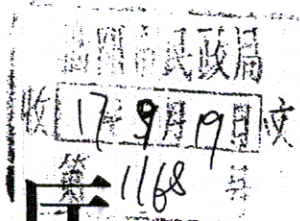 市民政局
收 17年9月19日文
第1168号